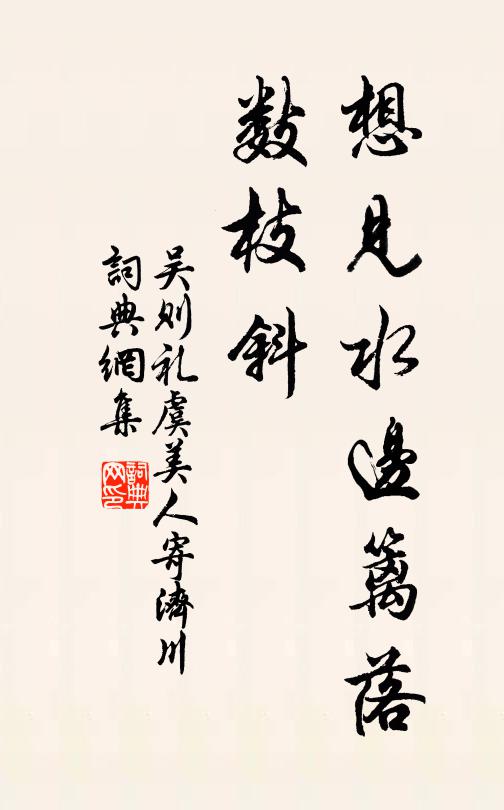 想見水邊籬落
數枝斜
吴则礼虞美人寄濟川
詞典網集
詞典
网印